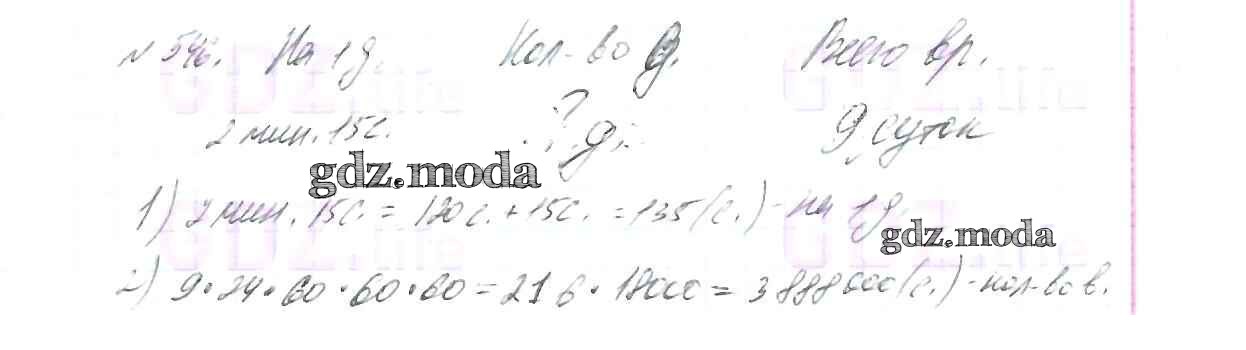 № 546. На 1 д. Кол-во д. Всего вр.
2 мин. 15с. ? д. 9 суток
gdz.moda
1) 2 мин. 15с. = 120 с. + 15с. = 135 (с.) - на 1 д.
gdz.moda
2) 9 • 24 • 60 • 60 • 60 = 216 • 18000 = 3888000 (с.) - кол-во в.